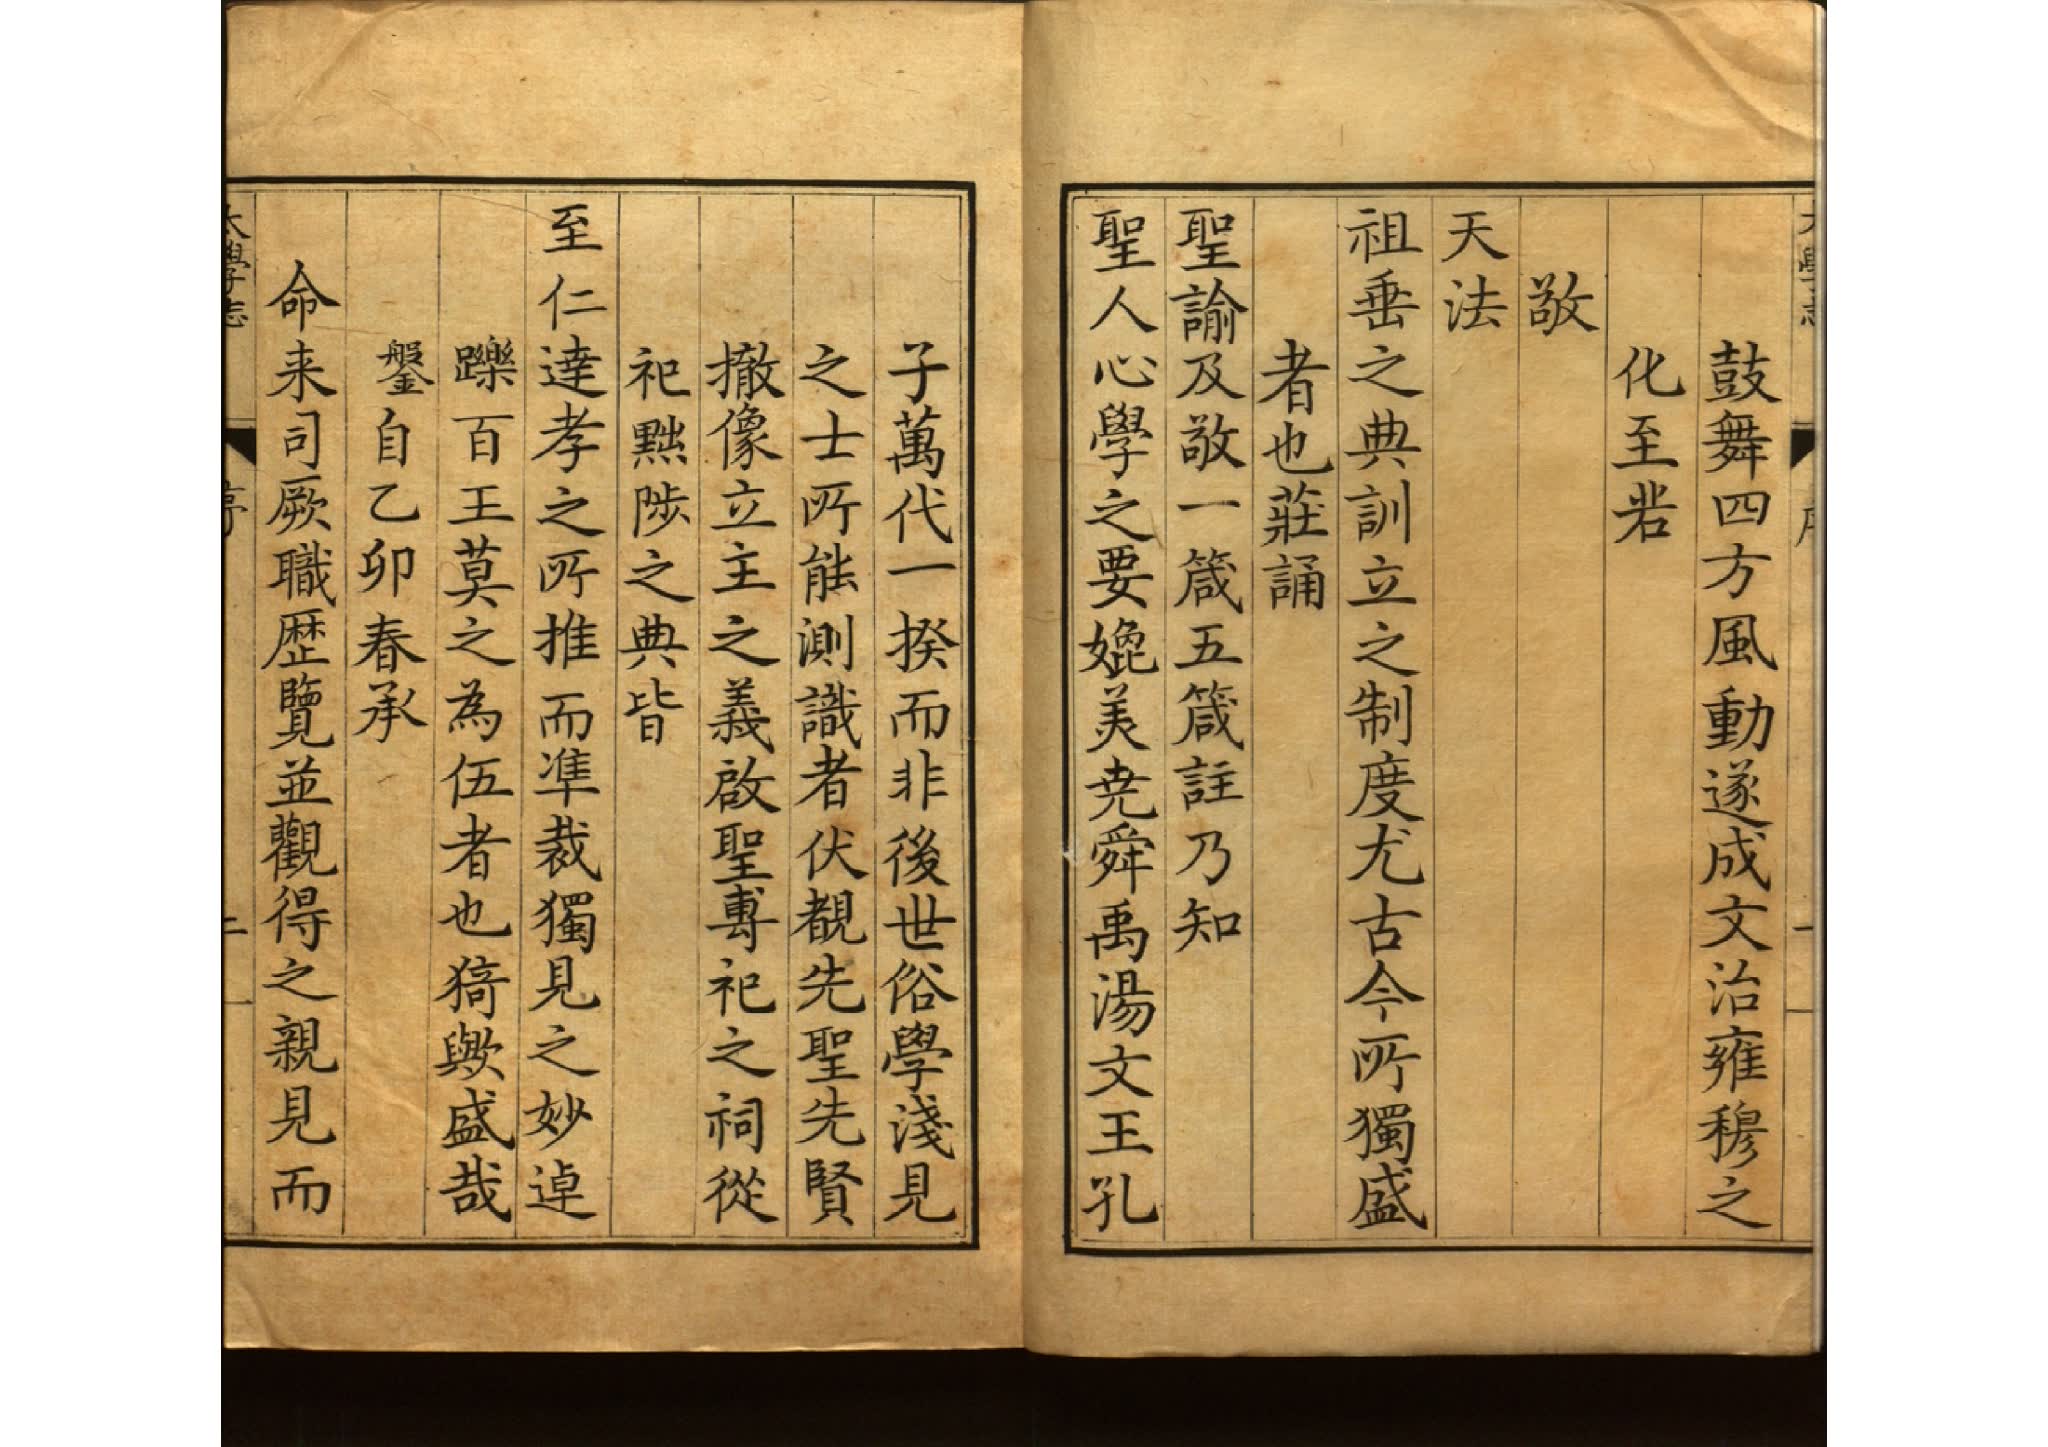 鼓舞四方風動遂成文治雍穆之
化至若
敬
天法
祖垂之典訓立之制度尤古今所獨盛
者也莊誦
聖諭及敬一箴五箴註乃知
聖人心學之要媲美尭舜禹湯文王孔
子萬代一揆而非後世俗學淺見
之士所能測識者伏覩先聖先賢
撤像立主之義啟聖專祀之祠從
祀黜陟之典皆
至仁達孝之所推而凖裁獨見之妙逴
躒百王莫之為伍者也猗歟盛哉
鎜自乙卯春承
命来司厥職歴覽並觀得之親見而
太學志
序
二